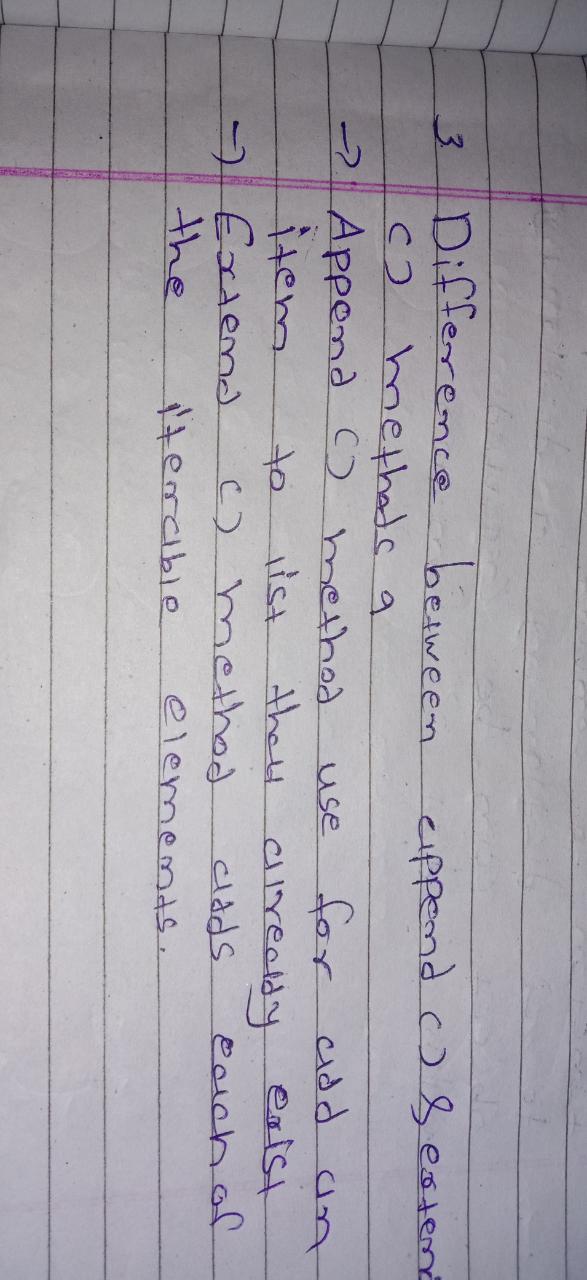 3 Difference between append () & exten
() methods ?
→ Append () method use for add an
item to list that already exist
→ Extend () method adds each of
the iterrable elements.